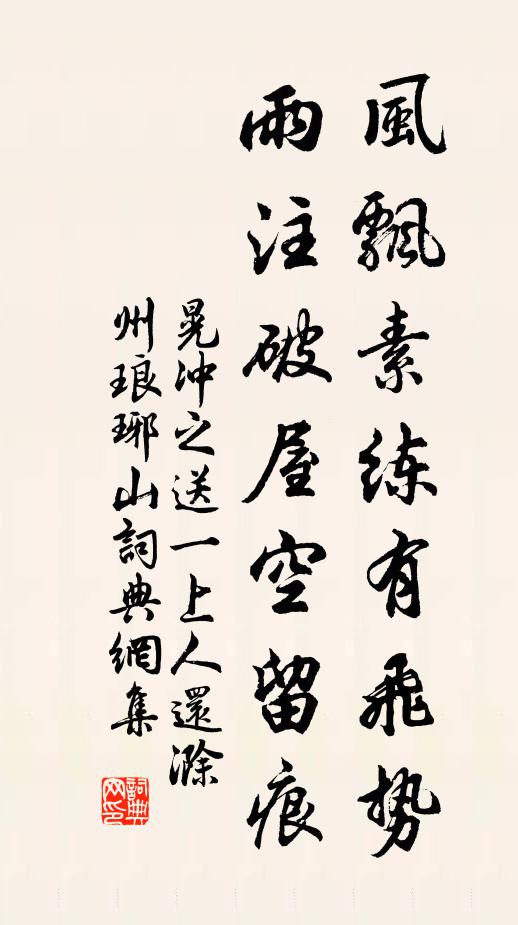 風飄素練有飛勢
雨注破屋空留痕
晁冲之送一上人還滁
州琅琊山詞典網集
詞典
网印